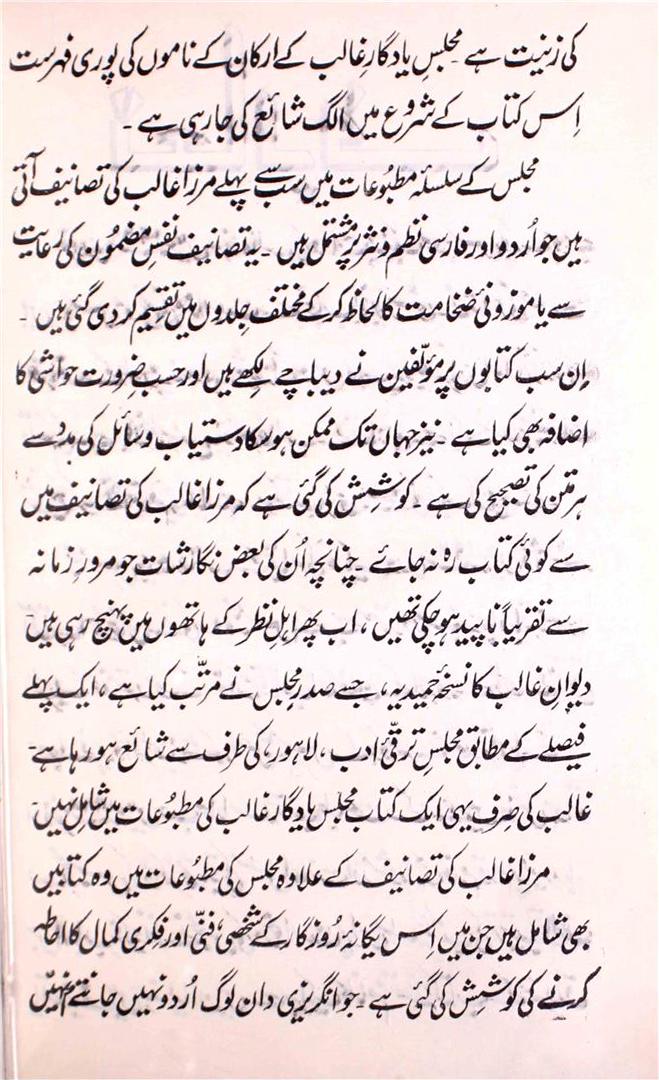 کی زینت ہے ۔ مجلسِ یادگارِ غالب کے ارکان کے ناموں کی پوری فہرست
اِس کتاب کے شروع میں الگ شائع کی جا رہی ہے ۔
مجلس کے سلسلۂ مطبُوعات میں سب سے پہلے مرزا غالب کی تصانیف آتی
ہیں جو اُردو اور فارسی نظم و نثر پر مشتمل ہیں ۔ یہ تصانیف نفسِ مضمُون کی رعایت
سے یا موزونیٔ ضخامت کا لحاظ کر کے مختلف جِلدوں میں تقسیم کر دی گئی ہیں ۔
اِن سب کتابوں پر مؤلّفین نے دیباچے لِکھے ہیں اور حسبِ ضرورت حواشی کا
اضافہ بھی کیا ہے ۔ نیز جہاں تک ممکن ہو سکا دستیاب وسائل کی مدد سے
ہر متن کی تصحیح کی ہے ۔ کوشِش کی گئی ہے کہ مرزا غالب کی تصانیف میں
سے کوئی کتاب رہ نہ جائے ۔ چنانچہ اُن کی بعض نگارشات جو مرورِ زمانہ
سے تقریباً ناپید ہو چکی تھیں ، اب پھر اہلِ نظر کے ہاتھوں میں پہنچ رہی ہیں ۔
دیوانِ غالب کا نسخۂ حمیدیہ ، جسے صدرِ مجلِس نے مرتّب کیا ہے ، ایک پہلے
فیصلے کے مطابق مجلسِ ترقّیٔ ادب ، لاہور ، کی طرف سے شائع ہو رہا ہے ۔
غالب کی صِرف یہی ایک کتاب مجلسِ یادگارِ غالب کی مطبُوعات میں شامل نہیں ۔
مرزا غالب کی تصانیف کے علاوہ مجلس کی مطبُوعات میں وہ کتابیں
بھی شامل ہیں جن میں اِس یگانۂ رُوزگار کے شخصی ، فنّی اور فِکری کمال کا احاطہ
کرنے کی کوشِش کی گئی ہے ۔ جو انگریزی دان لوگ اُردو نہیں جانتے اُنہیں